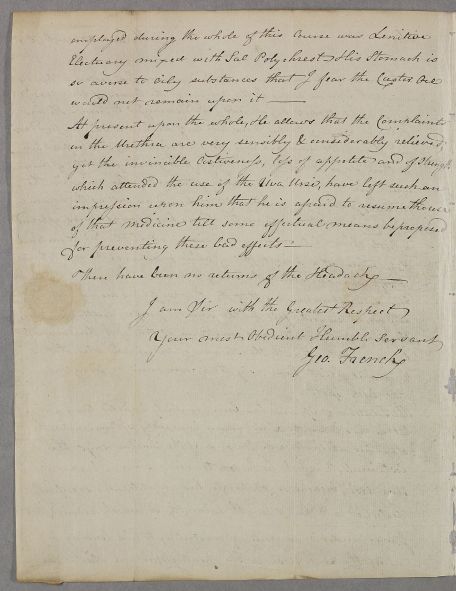 employed during the whole of this Course was Lenitive
Electuary mixed with Sal Polychrest. His Stomach is
so averse to Oily substances that I fear the Castor Oil
would not remain upon it —
At present upon the whole, He allows that the Complaints
in the Urethra are very sensibly & considerably relieved,
yet the invincible Costiveness, loss of appetite and of Strength
which attended the use of the Uva Ursi, have left such an
impression upon him that he is afraid to resume the use
of that medicine till some effectual means be proposed
for preventing these bad effects —
There have been no returns of the Headach —
I am Sir with the Greatest Respect
Your most Obedient Humble Servant
Geo. French